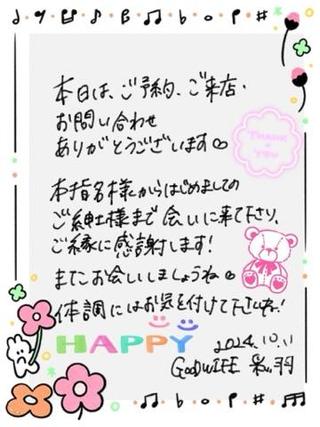 本日は、ご予約、ご来店、
お問い合わせ
ありがとうございます
THANK
YOU
本指名様からはじめましての
ご紳士様まで会いに来て下さり、
ご縁に感謝します!
またお会いしましょうね
体調にはお気を付けて下さいね!
HAPPY
2024.10.11
GOODWIFE